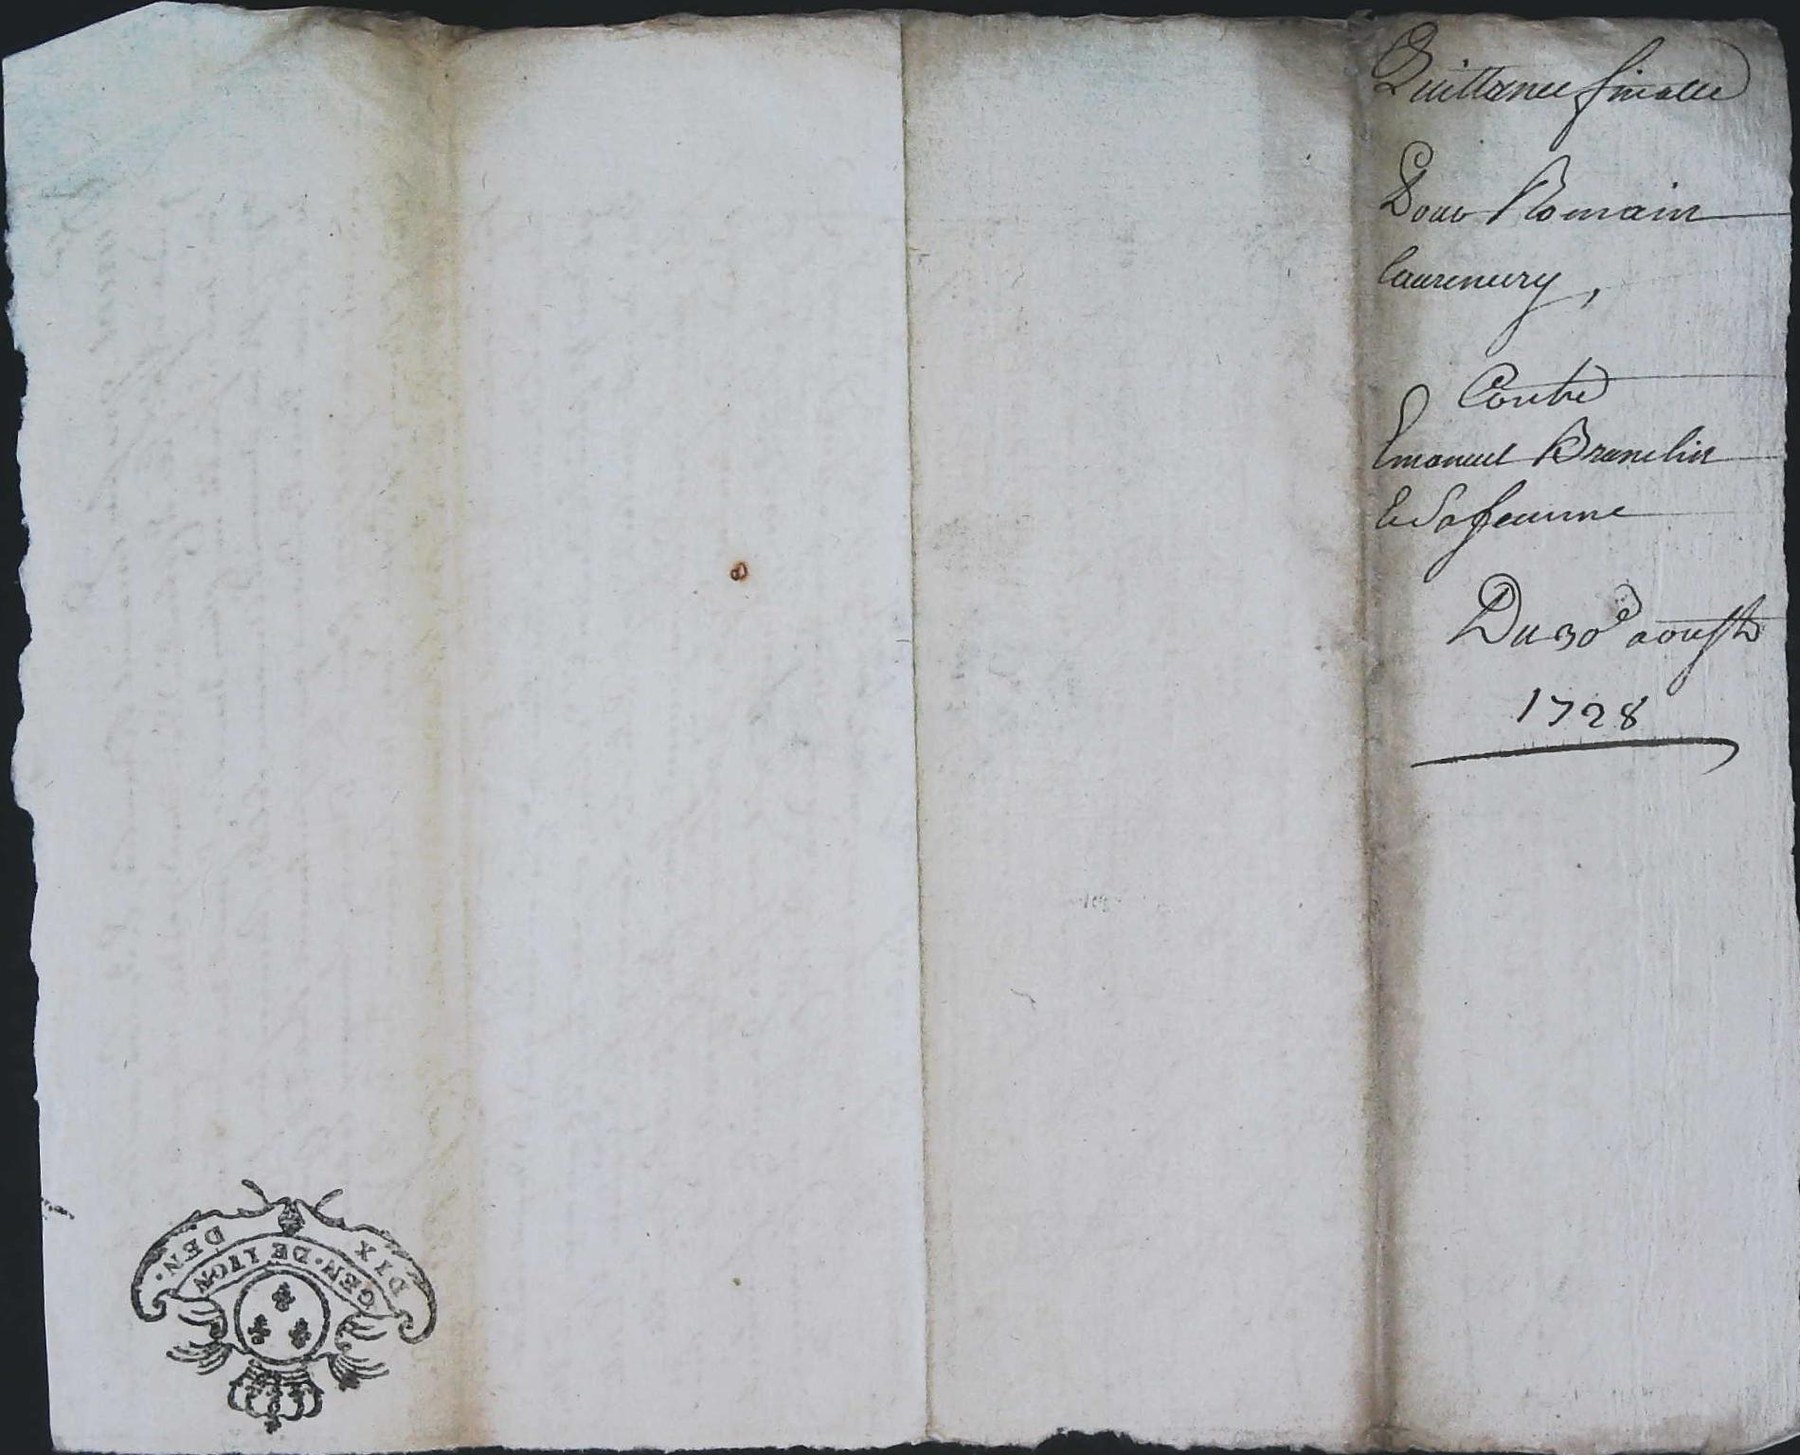 Quittance finalle
Pour Romain
Laurency,
Contre
Emanuel Branchin
et Sa femme
Du 30e aoust
1728
DIX DEN.
GEN. DE LION